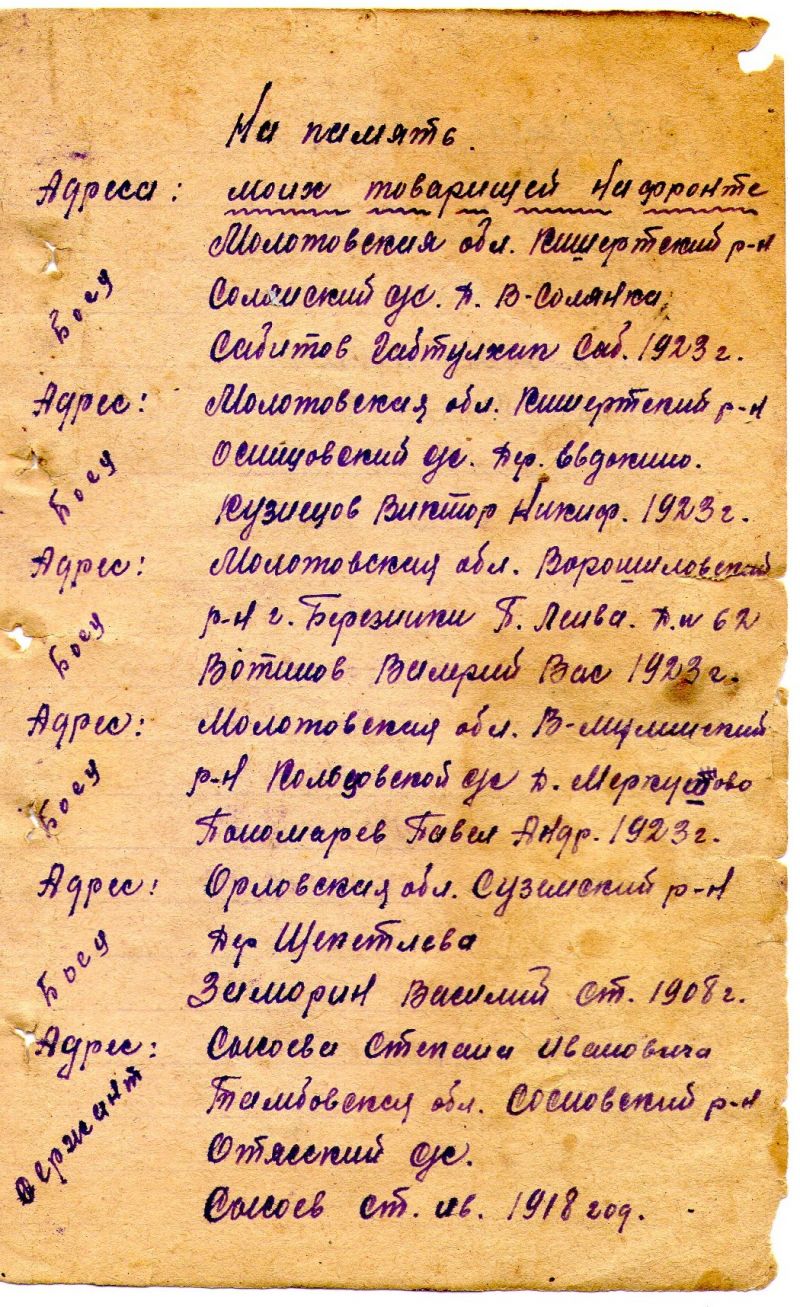 На память.
Адреса: моих товарищей на фронте
Молотовская обл. Кишертский р-н
Боец
Солянский с/с. д. В-Солянка
Сабитов Габтулхан Саб. 1923 г.
Адрес: Молотовская обл. Кишертский р-н
Боец
Осинцовский с/с. Дер. Евдокино.
Кузнецов Виктор Никиф. 1923 г.
Адрес: Молотовская обл. Ворошиловский
Боец
р-н г. Березники П. Лёнва. Д. н 62
Вотинов Валерий Вас 1923 г.
Адрес: Молотовская обл. В-муллинский
Боец
р-н с/с Д. Меркушово
Пономарев Павел Андр. 1923 г.
Адрес: Орловская обл. Суземский р-н
Боец
Дер Щепетлева
Зиморин Василий Ст. 1908 г.
Адрес: Сысоева Степана Ивановича
Сержант
Тамбовская обл. Сосновский р-н
Отясский с/с.
Сысоев Ст. Ив. 1918 год.